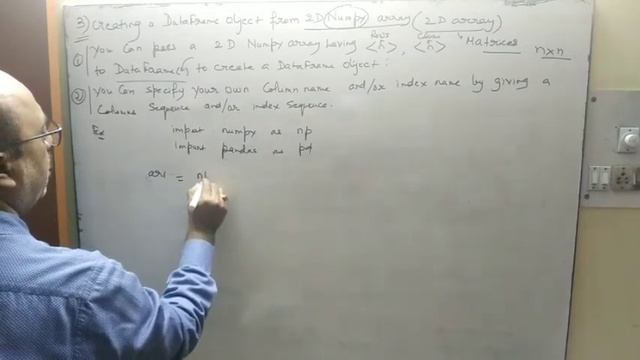 3) Creating a DataFrame object from 2D Numpy array (2D array)
Rows Columns
① You Can pass a 2D Numpy array having <n>, <n> Matrices n×n
to DataFrame() to create a DataFrame object:
② You Can specify your own Column name and/or index name by giving a
Columns Sequence and/or index Sequence.
Ex import numpy as np
import pandas as pd
arr1 = np